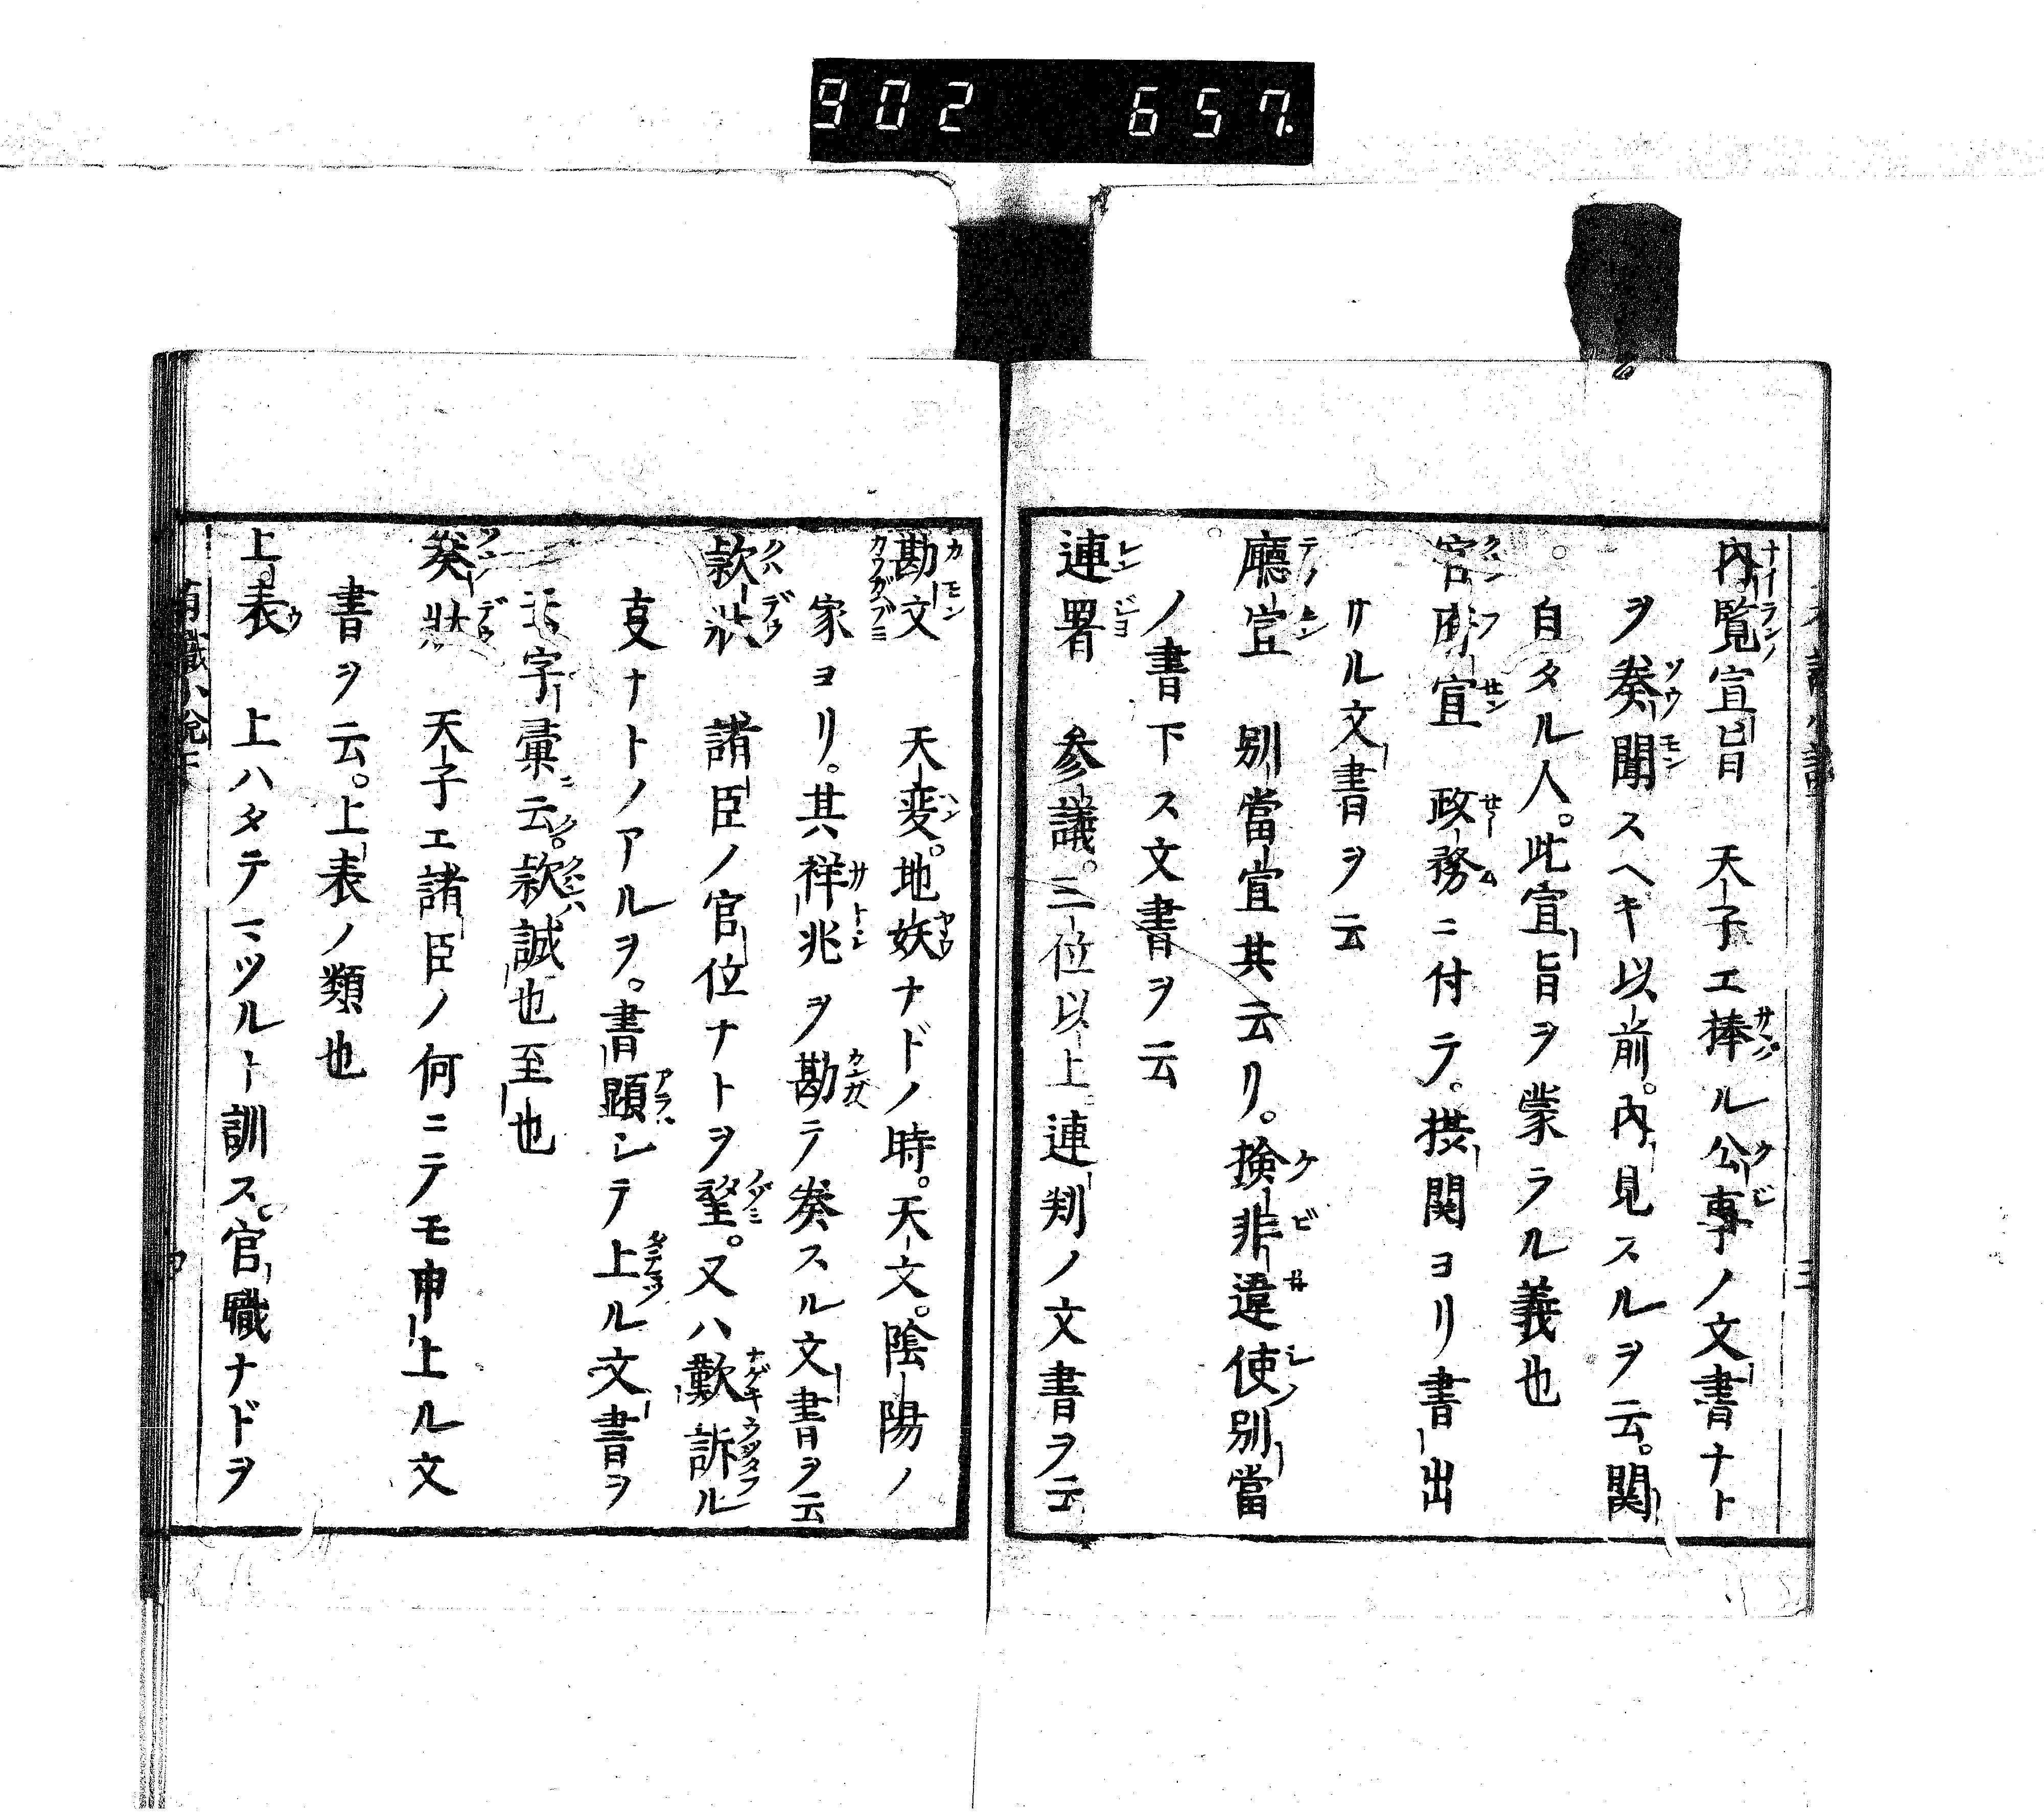 902 657.
内覧宣旨 天子エ捧ル公事ノ文書ナト
ヲ奏聞スヘキ以前。内見スルヲ云。関
白タル人。此宣旨ヲ蒙ラル義也
官府宣 政務ニ付テ。摂関ヨリ書出
サル文書ヲ云
廳宣 別當宣共云リ。検非違使別當
ノ書下ス文書ヲ云
連署 参議。三位以上連判ノ文書ヲ云
勘文 天変。地妖ナドノ時。天文。陰陽ノ
家ヨリ。其祥兆ヲ勘テ奏スル文書ヲ云
款状 諸臣ノ官位ナトヲ望。又ハ歎訴ル
支ナトノアルヲ。書顕シテ上ル文書ヲ
云字彙ニ云。款誠也至也
奏状 天子エ諸臣ノ何ニテモ申上ル文
書ヲ云。上表ノ類也
上表 上ハタテマツルト訓ス。官職ナドヲ